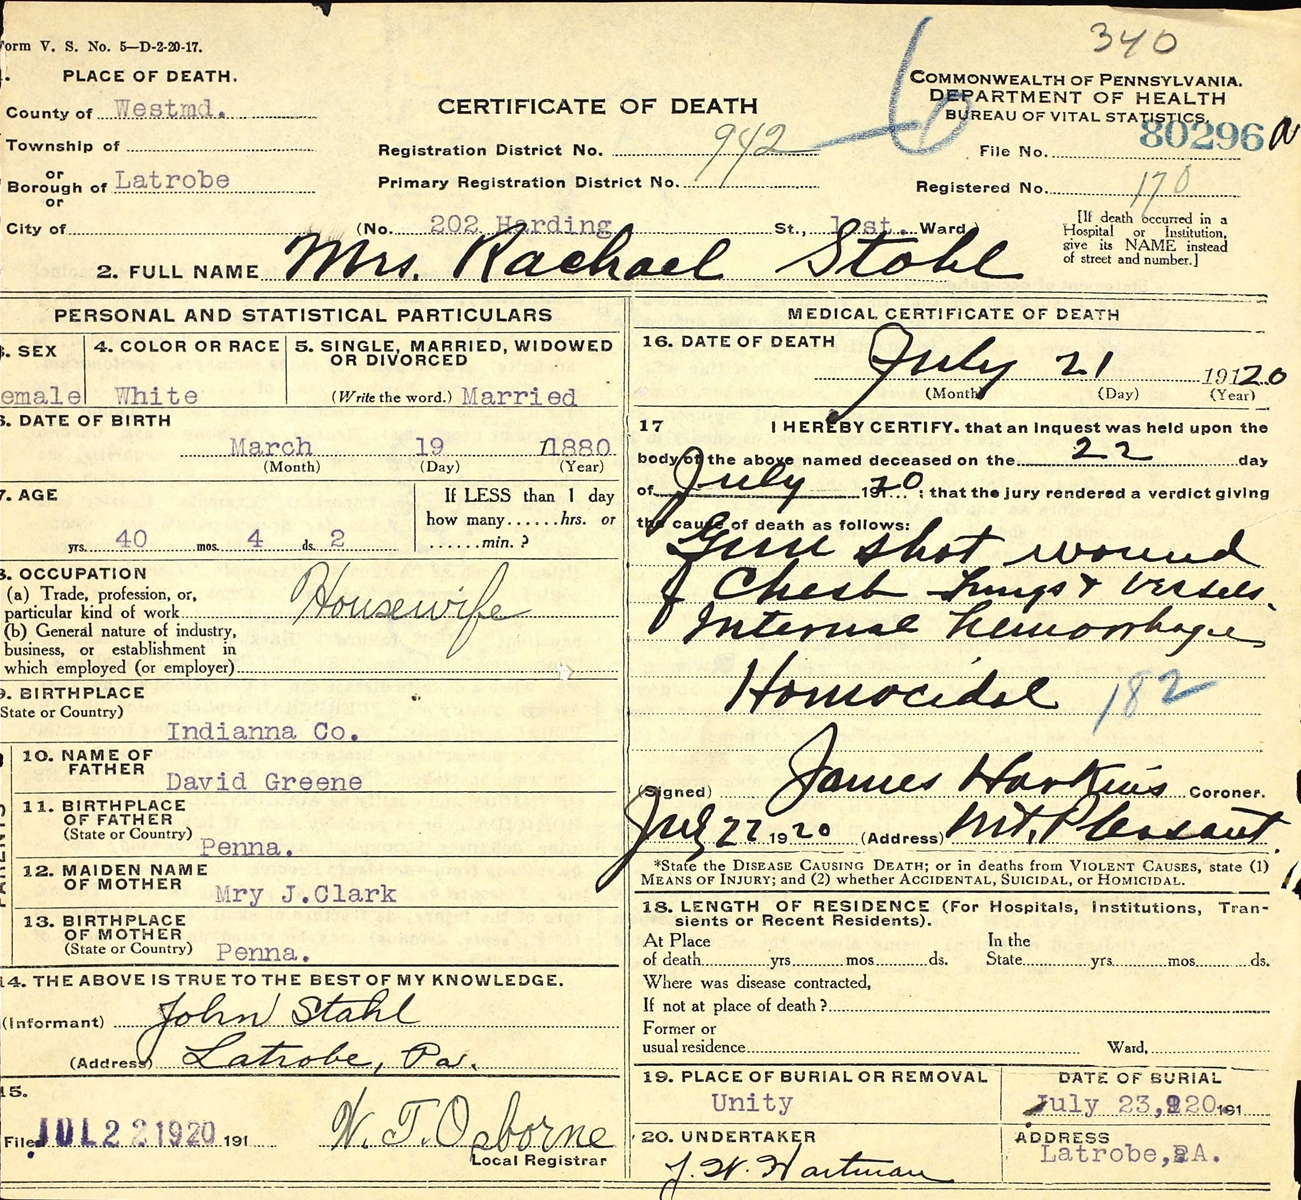 Form V. S. No. 5—D-2-20-17.
340
1. PLACE OF DEATH.
County of Westmd.
Township of
or
Borough of Latrobe
or
City of
CERTIFICATE OF DEATH
Registration District No. 942
Primary Registration District No.
(No. 202 Harding St., 1st. Ward)
COMMONWEALTH OF PENNSYLVANIA.
DEPARTMENT OF HEALTH
BUREAU OF VITAL STATISTICS.
File No. 80296
Registered No. 170
[If death occurred in a
Hospital or Institution,
give its NAME instead
of street and number.]
2. FULL NAME Mrs. Rachael Stahl
PERSONAL AND STATISTICAL PARTICULARS
3. SEX
emale
4. COLOR OR RACE
White
5. SINGLE, MARRIED, WIDOWED
OR DIVORCED
(Write the word.) Married
6. DATE OF BIRTH
March 19 1880
(Month) (Day) (Year)
7. AGE
yrs. 40 mos. 4 ds. 2
If LESS than 1 day
how many......hrs. or
......min. ?
8. OCCUPATION
(a) Trade, profession, or,
particular kind of work Housewife
(b) General nature of industry,
business, or establishment in
which employed (or employer)
9. BIRTHPLACE
State or Country)
Indianna Co.
PARENTS
10. NAME OF
FATHER
David Greene
11. BIRTHPLACE
OF FATHER
(State or Country) Penna.
12. MAIDEN NAME
OF MOTHER Mry J.Clark
13. BIRTHPLACE
OF MOTHER
(State or Country) Penna.
14. THE ABOVE IS TRUE TO THE BEST OF MY KNOWLEDGE.
(Informant) John Stahl
(Address) Latrobe, Pa.
15.
Filed JUL 22 1920 191
W. T. Osborne
Local Registrar
MEDICAL CERTIFICATE OF DEATH
16. DATE OF DEATH
July 21 1920
(Month) (Day) (Year)
17 I HEREBY CERTIFY. that an inquest was held upon the
body of the above named deceased on the 22 day
of July 1920 ; that the jury rendered a verdict giving
the cause of death as follows:
Gun shot wound
of Chest Lungs & Vessels.
Internal hemorrhage
Homocidal 182
(Signed) James Harkins Coroner.
July 22 1920 (Address) Mt. Pleasant.
*State the DISEASE CAUSING DEATH; or in deaths from VIOLENT CAUSES, state (1)
MEANS OF INJURY; and (2) whether ACCIDENTAL, SUICIDAL, or HOMICIDAL.
18. LENGTH OF RESIDENCE (For Hospitals, Institutions, Tran-
sients or Recent Residents).
At Place
of death..........yrs..........mos..........ds.
In the
State..........yrs..........mos..........ds.
Where was disease contracted,
If not at place of death ?
Former or
usual residence Ward,
19. PLACE OF BURIAL OR REMOVAL
Unity
DATE OF BURIAL
July 23, 920 191
20. UNDERTAKER
J. W. Hartman
ADDRESS
Latrobe,PA.